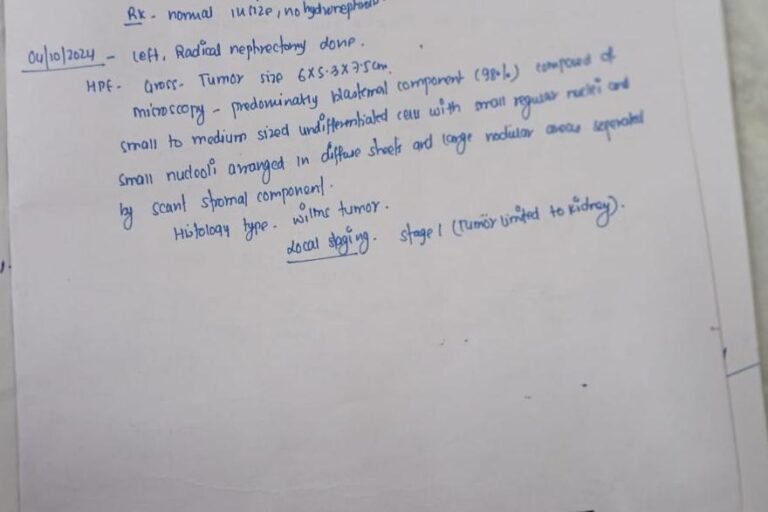 RK - normal in size, no hydronephrosis
04/10/2024 - Left, Radical nephrectomy done.
HPE - Gross - Tumor size 6x5.3x7.5cm.
microscopy - predominatly blastemal component (98%) composed of
small to medium sized undifferentiated cells with small regular nuclei and
small nucleoli arranged in diffuse sheets and large nodular areas seperated
by scant stromal component.
Histology type - wilms tumor.
Local staging - stage 1 (Tumor limited to kidney).